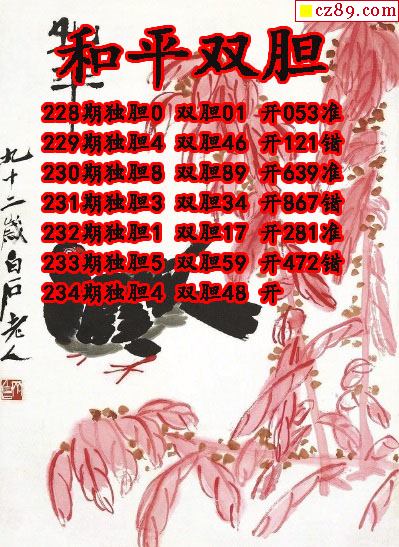 cz89.com
和平双胆
228期独胆0 双胆01 开053准
229期独胆4 双胆46 开121错
230期独胆8 双胆89 开639准
231期独胆3 双胆34 开867错
232期独胆1 双胆17 开281准
233期独胆5 双胆59 开472错
234期独胆4 双胆48 开
九十二岁白石老人